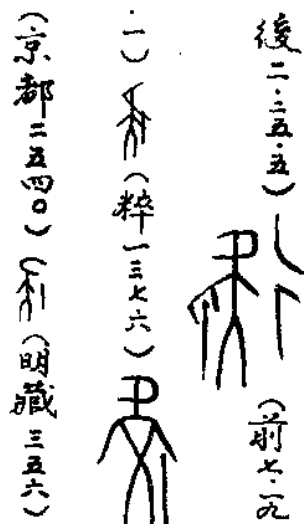 後二·二五·五）（前七·一九
·一）（粹一三七六）
（京都二五四〇）（明藏三五六）